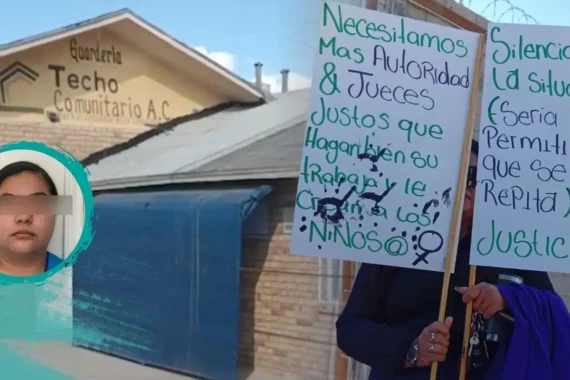 Guardería
Techo
Comunitario A.C.
Necesitamos
Mas Autoridad
& Jueces
Justos que
Hagan bien su
trabajo y le
a las
Niños@
Silencia
la situa
(Seria
Permiti
que se
Repita)
Justic